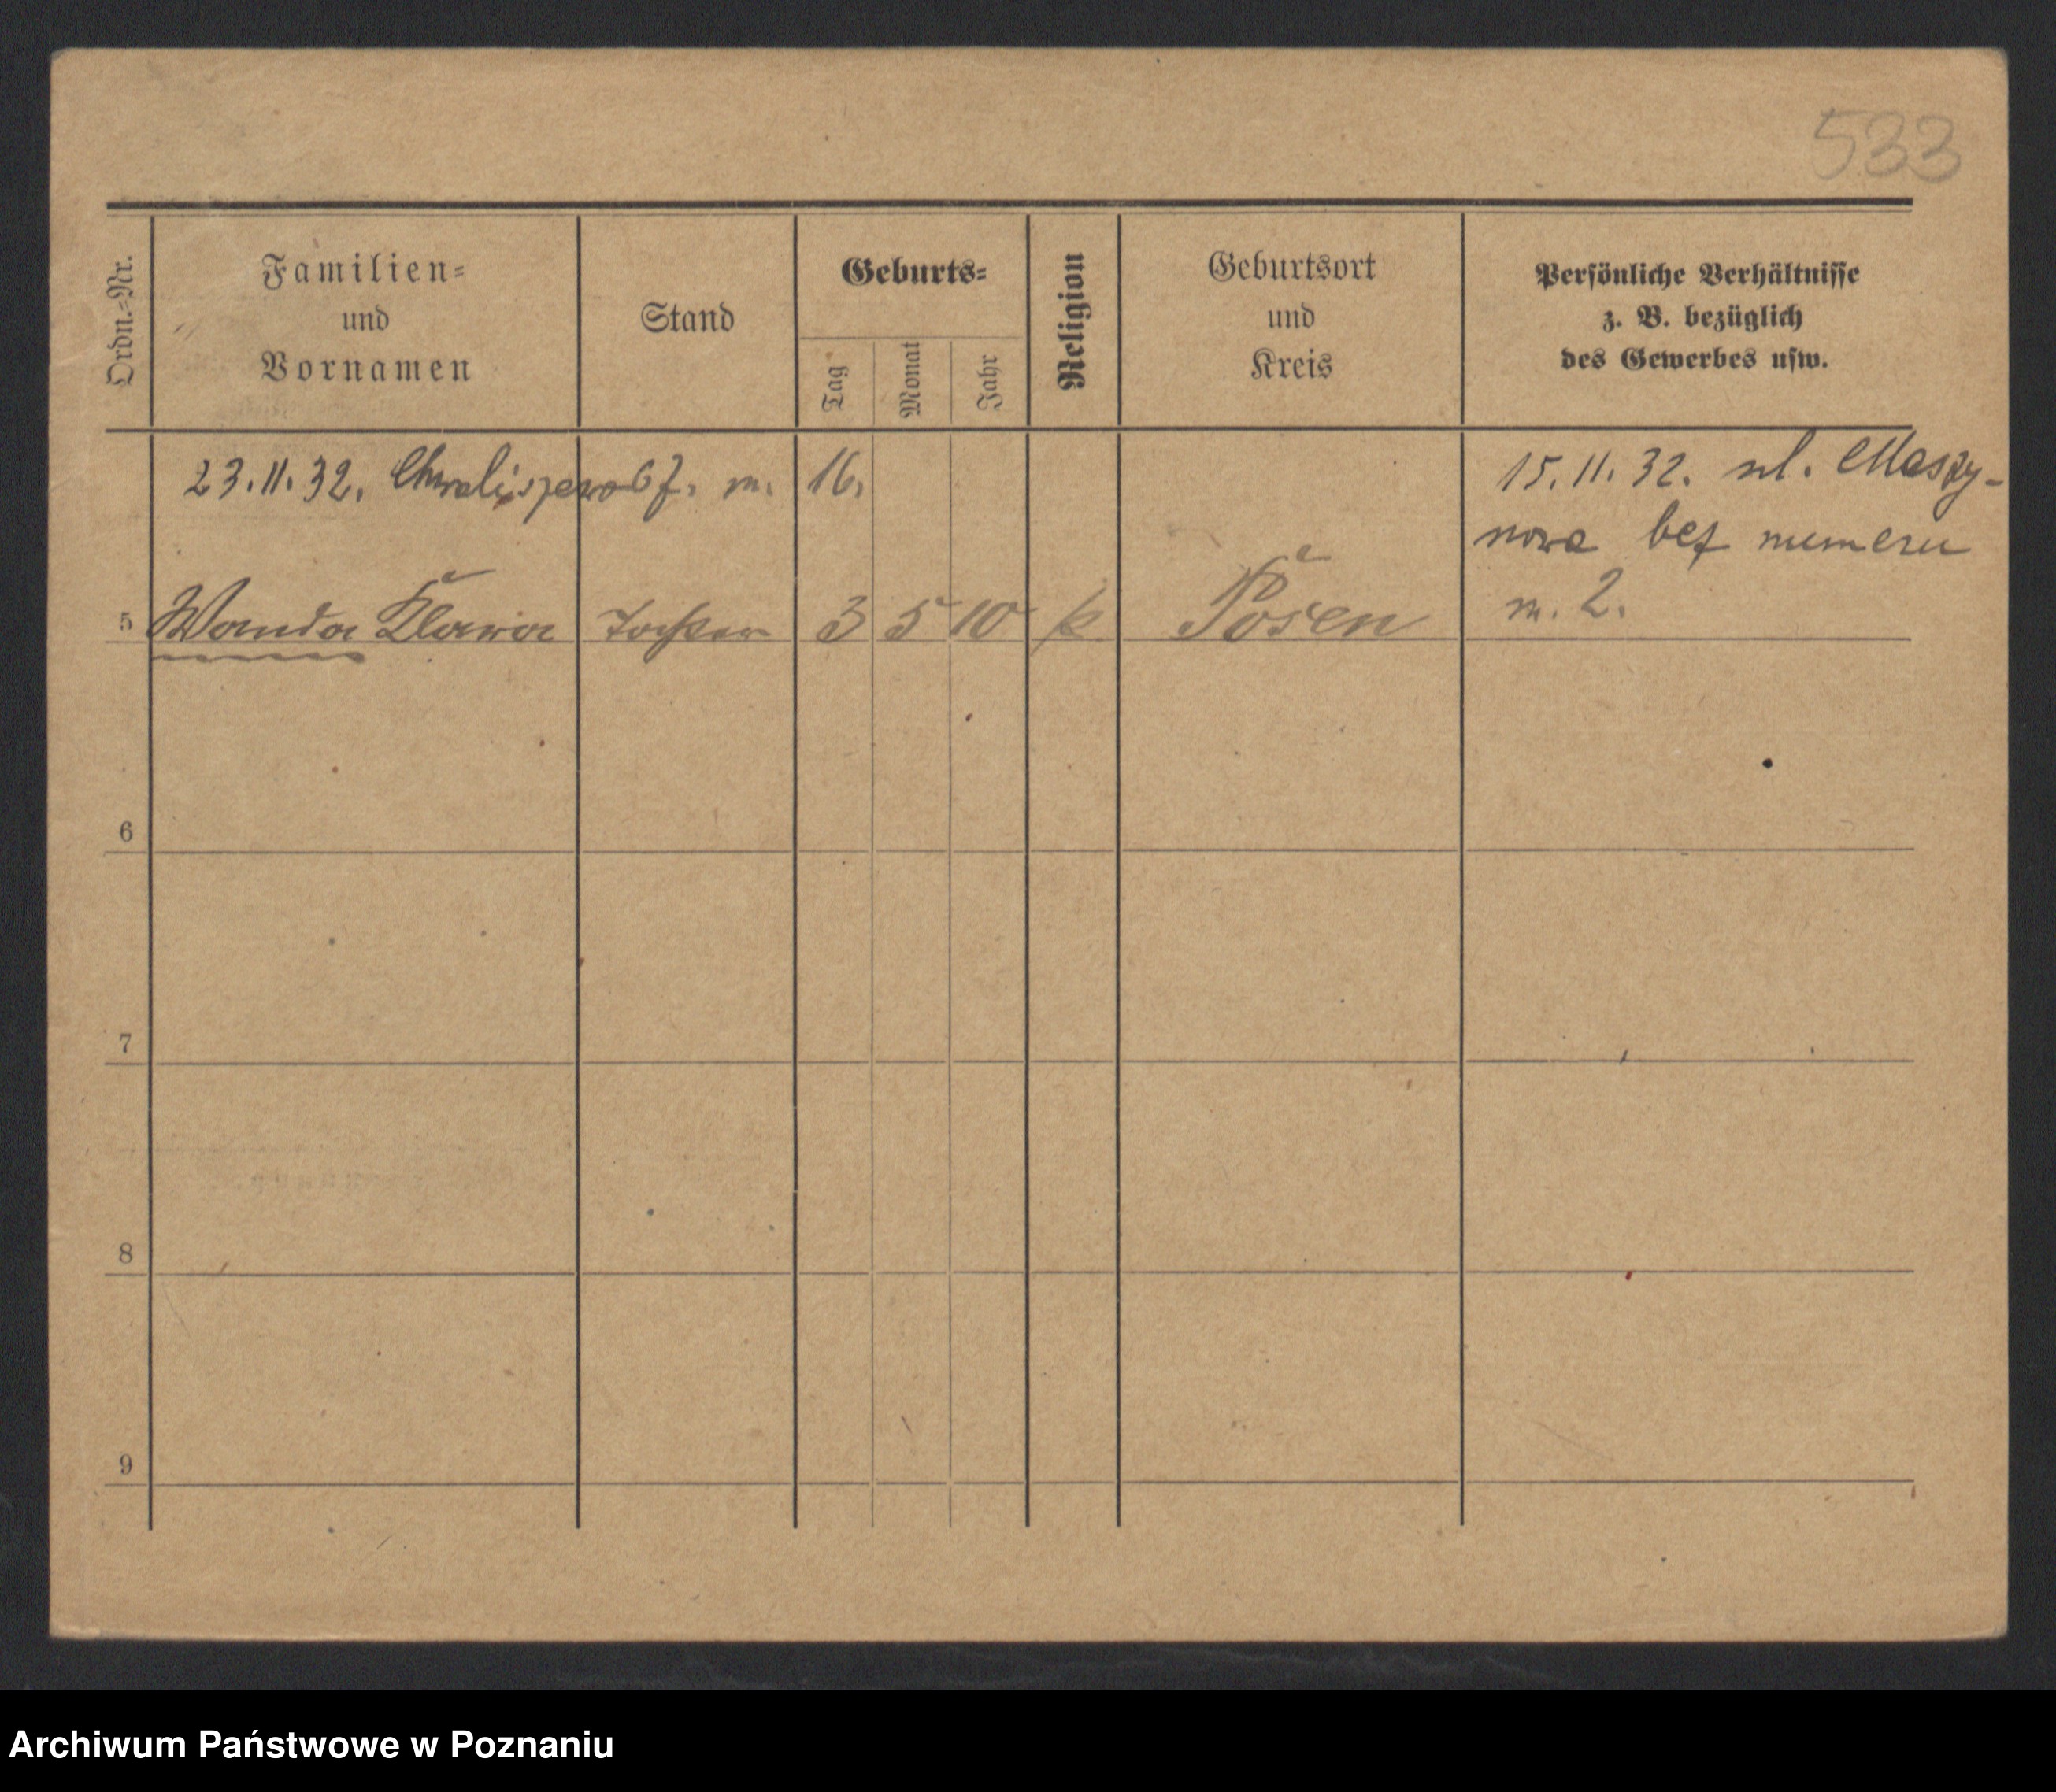 533
Ordn.=Nr.
Familien=
und
Vornamen
Stand
Geburts=
Tag
Monat
Jahr
Religion
Geburtsort
und
Kreis
Persönliche Verhältnisse
z. B. bezüglich
des Gewerbes usw.
23.11.32. Chwaliszewo 67. m. 16.
15.11.32. ul. Maszy-
nowa bez numeru
m. 2.
5 Wanda Klara Tochter 3 5 10 k Posen
6
7
8
9
Archiwum Państwowe w Poznaniu